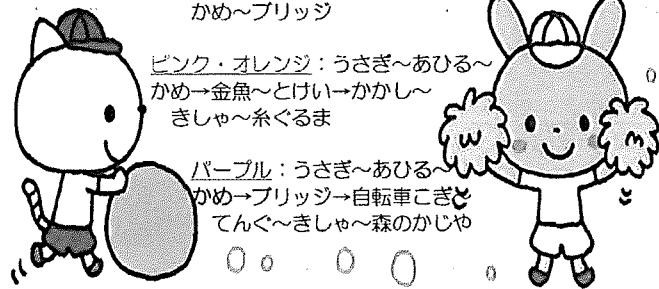 かめ～ブリッジ
ピンク・オレンジ：うさぎ～あひる～
かめ→金魚～とけい→かかし～
きしゃ～糸ぐるま
パープル：うさぎ～あひる～
かめ→ブリッジ→自転車こぎと
てんぐ～きしゃ～森のかじや